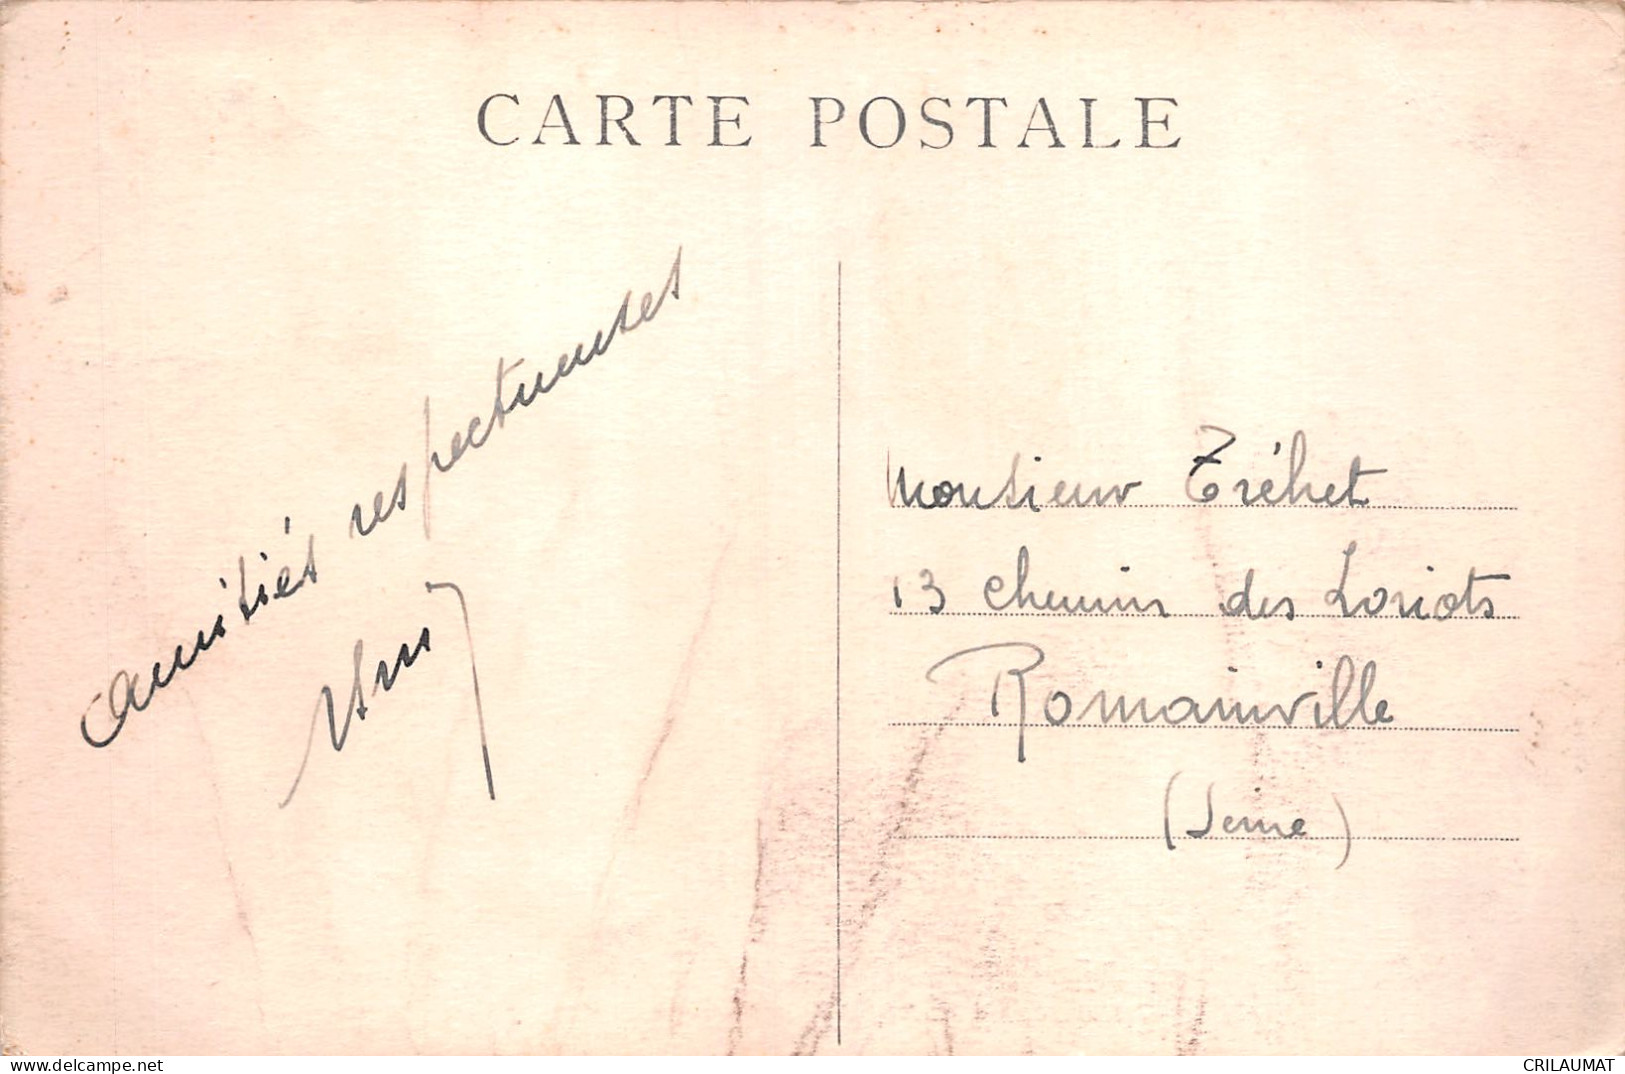 CARTE POSTALE
amitiés respectueuses
Monsieur Tréhet
13 chemin des Loriots
Romainville
(Seine)
www.delcampe.net
CRILAUMAT